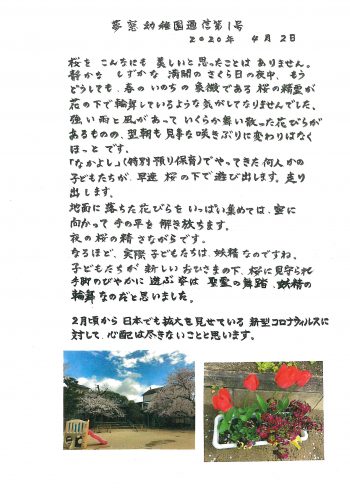 夢窓幼稚園通信第1号
2020年 4月 2日
桜を こんなにも 美しいと思ったことは ありません。
静かな しずかな 満開の さくら日の夜中、もう
どうしても、春の いのちの 象徴である 桜の精霊が
花の下で 輪舞しているような 気がして なりませんでした。
強い雨と風が あって いくらか舞い散った 花びらが
あるものの、翌朝も 見事な咲きぶりに 変わりはなく
ほっと です。
「なかよし」(特別預り保育)でやってきた何人かの
子どもたちが、早速 桜の下で 遊び出します。走り
出します。
地面に 落ちた花びらを いっぱい集めては、空に
向かって 手の平を 解き放ちます。
夜の 桜の精 さながらです。
なるほど、実際 子どもたちは、妖精 なのですね。
子どもたちが 新しい おひさまの下、桜に見守られ
手脚のびやかに 遊ぶ姿は 聖霊の舞踏、妖精の
輪舞なのだと思いました。
2月頃から 日本でも拡大を見せている 新型コロナウィルスに
対して、心配は尽きないことと思います。